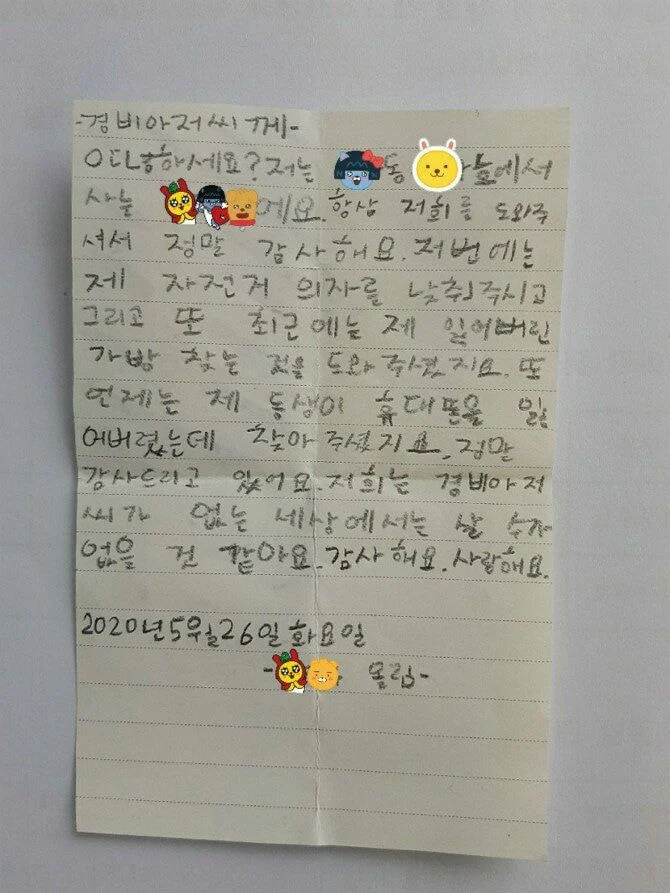 -경비아저씨께-
안녕하세요? 저는 동 호에서
사는 에요. 항상 저희를 도와주
셔서 정말 감사해요. 저번에는
제 자전거 의자를 낮춰주시고
그리고 또 최근에는 제 잃어버린
가방 찾는 것을 도와주셨지요. 또
언제는 제 동생이 휴대폰을 잃
어버렸는데 찾아주셨지요. 정말
감사드리고 있어요. 저희는 경비아저
씨가 없는 세상에서는 살 수가
없을 것 같아요. 감사해요. 사랑해요.
2020년 5월 26일 화요일
- 올림-